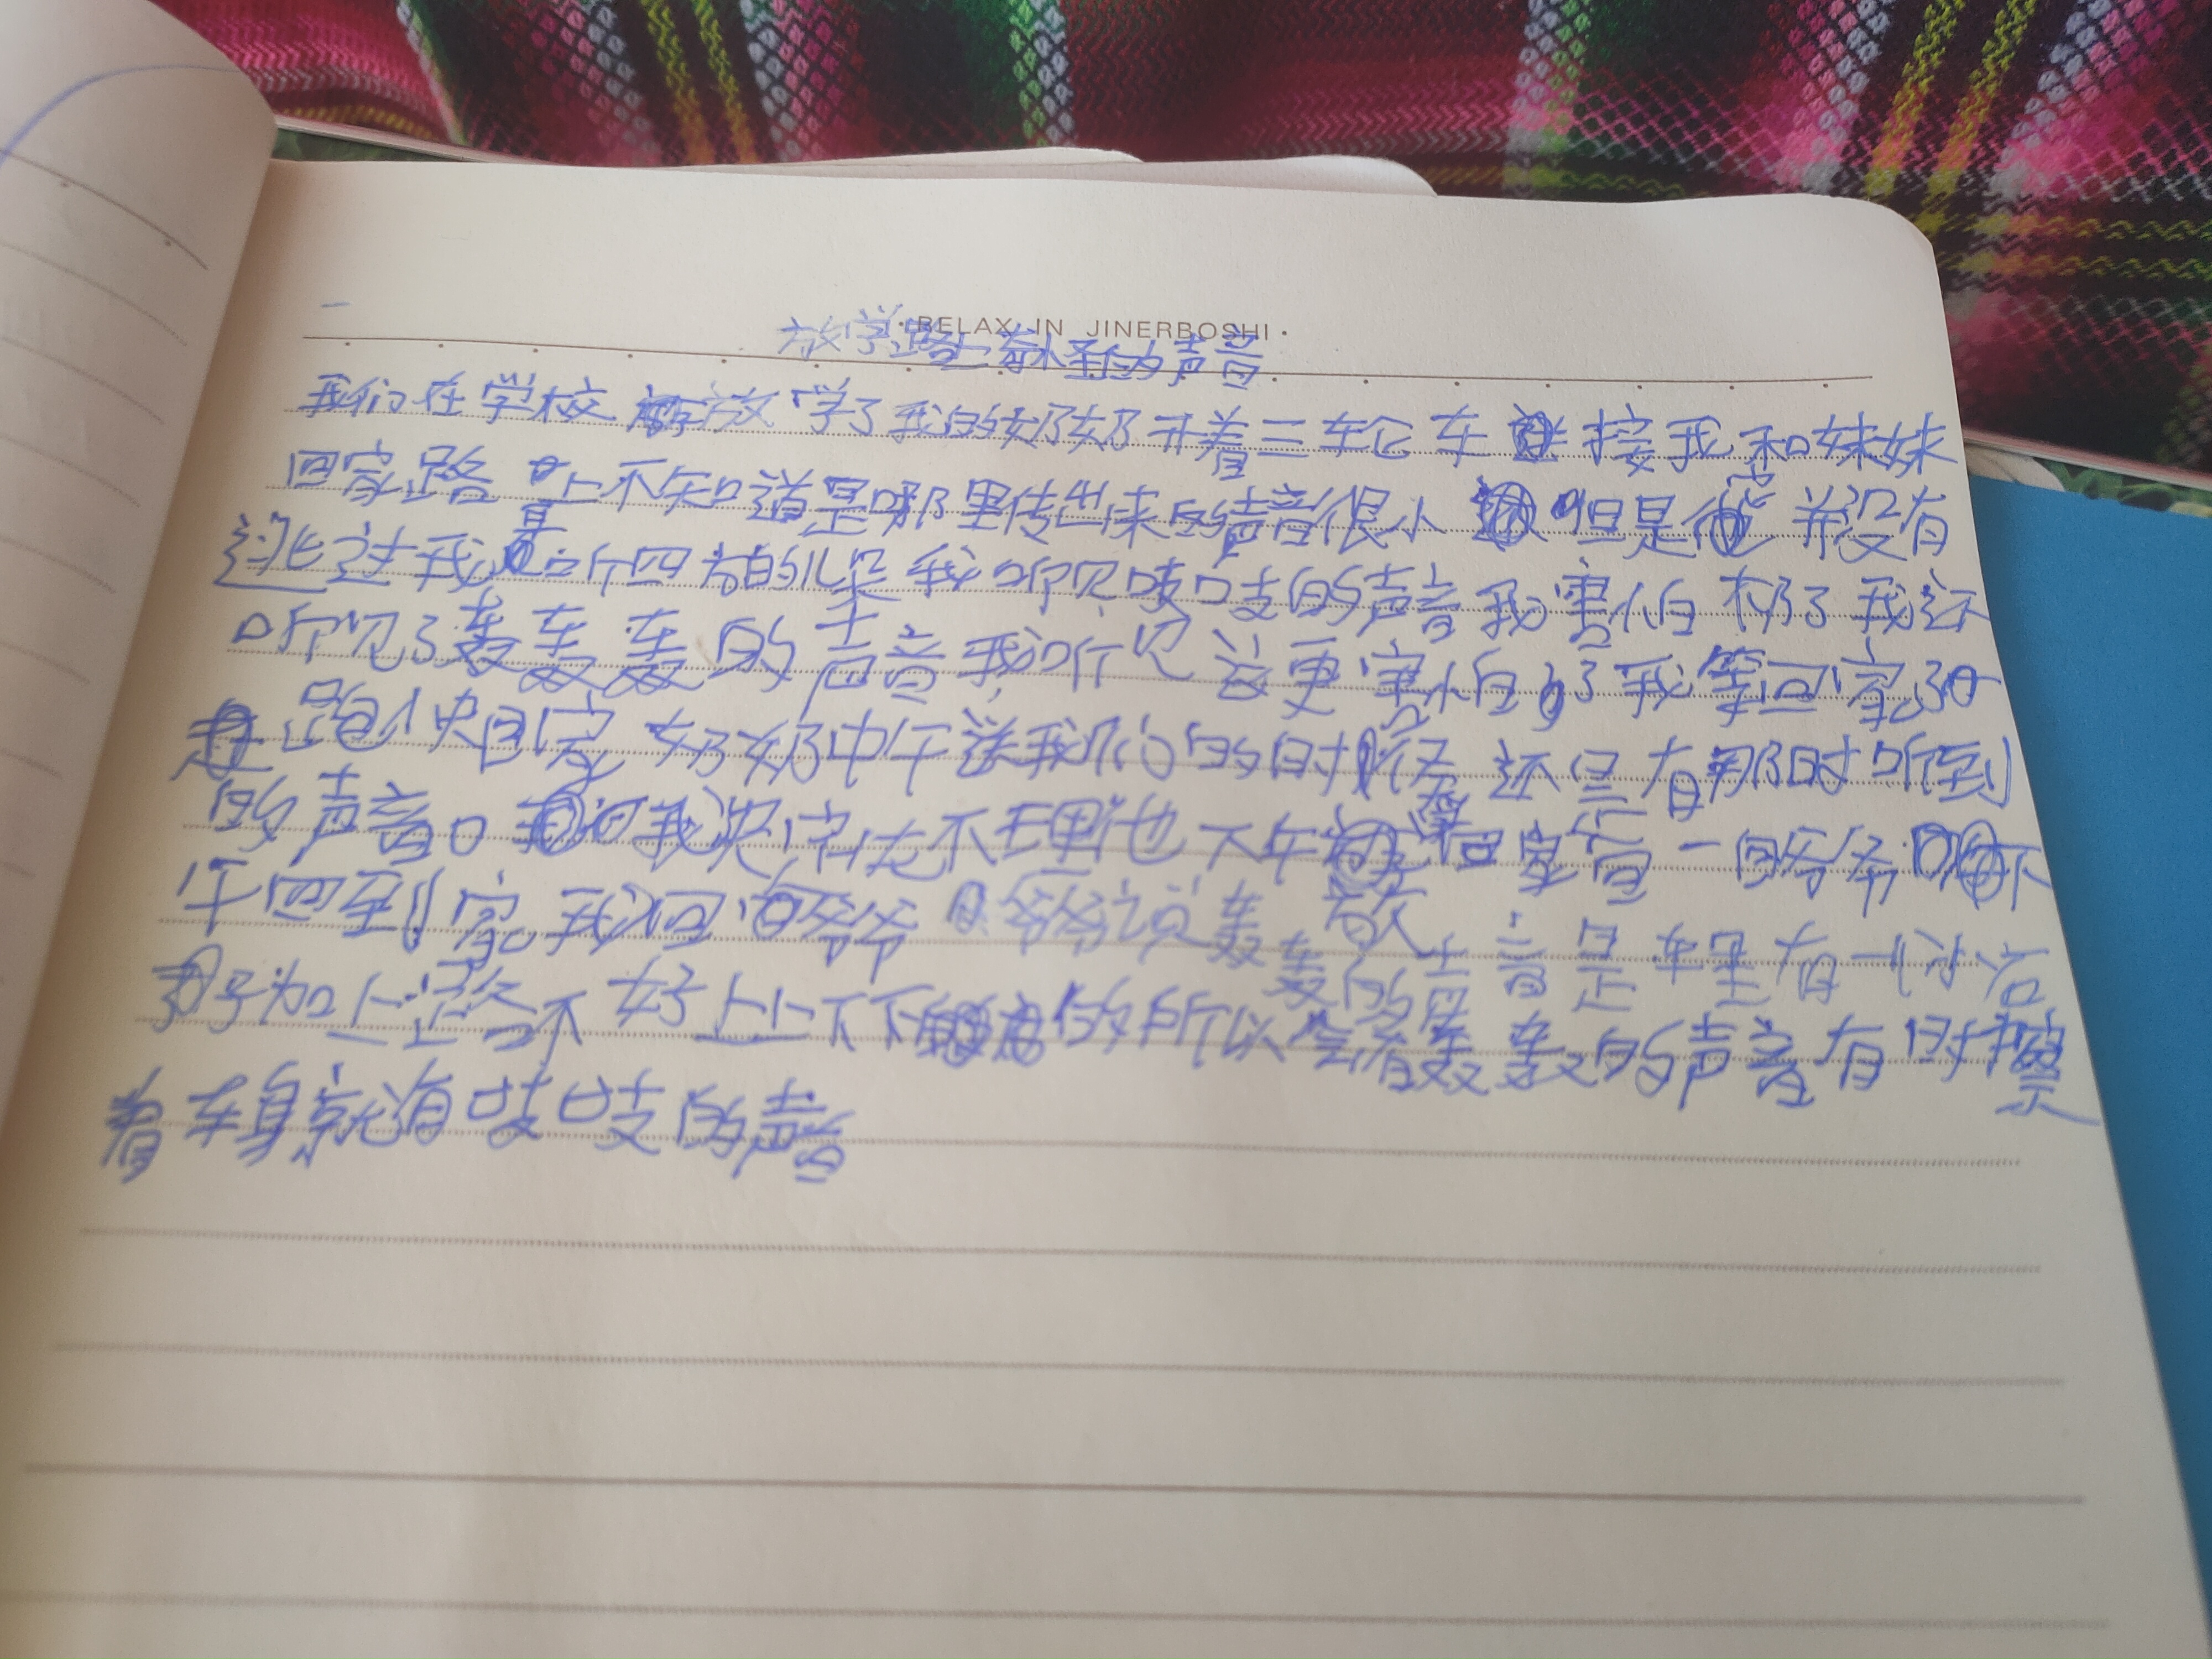 RELAX IN JINERBOSHI
放学路上奇怪的声音
我们在学校放学了我的奶奶开着三轮车接我和妹妹
回家路上不知道是哪里传出来的声音很小但是他并没有
逃过我耳听四方的儿朵我听见吱吱的声音我害怕极了我还
听见了轰轰轰的声音我听见这更害怕了我等回家
跑小快回家奶奶中午送我们的时候还是有那时听到
的声音。我决定不理他下午回家问爷爷下
午回到家我问爷爷爷爷说轰轰的声音是车里有一个小石
子加上路不好上上下下的所以会有轰轰的声音有时擦
着车身就有吱吱的声音